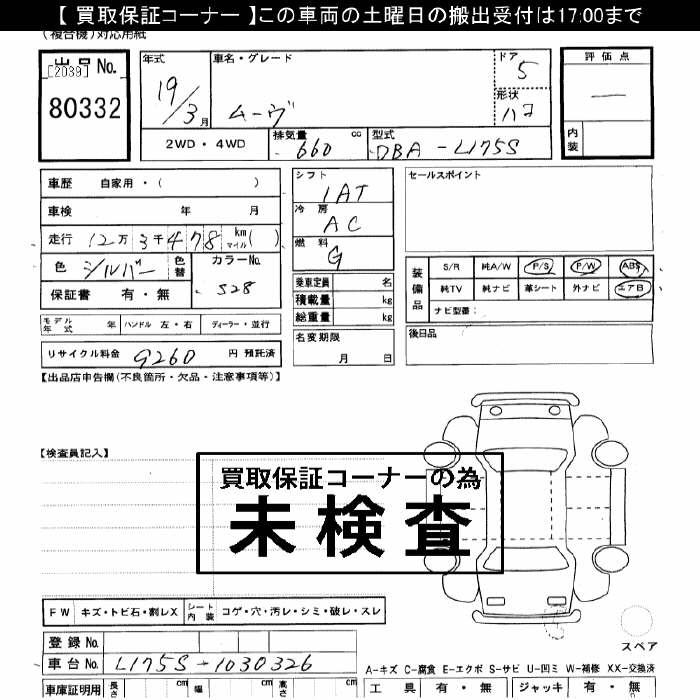 【 買取保証コーナー 】この車両の土曜日の搬出受付は17:00まで
(複合機)対応用紙
出品 No.
[2039]
80332
年式
19/3月
車名・グレード
ムーヴ
ドア
5
形状
ハコ
評価点
—
内装
2WD・4WD
排気量 660 cc
型式 DBA-L175S
車歴 自家用・( )
車検 年 月
走行 12万3千478 km マイル( )
色 シルバー 色替
カラーNo. S28
保証書 有・無
モデル年式 年 ハンドル 左・右 ディーラー・並行
リサイクル料金 9260 円 預託済
シフト
IAT
冷房
AC
燃料
G
乗車定員 名
積載量 kg
総重量 kg
名変期限
月 日
セールスポイント
装備品
S/R 純A/W P/S P/W ABS
純TV 純ナビ 革シート 外ナビ エアB
ナビ型番:
後日品
【出品店申告欄(不良箇所・欠品・注意事項等)】
【検査員記入】
買取保証コーナーの為
未検査
FW キズ・トビ石・割レX シート内装 コゲ・穴・汚レ・シミ・破レ・スレ
スペア
登録 No.
車台 No. L175S-1030326
車庫証明用 長さ cm 幅 cm 高さ cm
A-キズ C-腐食 E-エクボ S-サビ U-凹ミ W-補修 XX-交換済
工具 有・無 ジャッキ 有・無